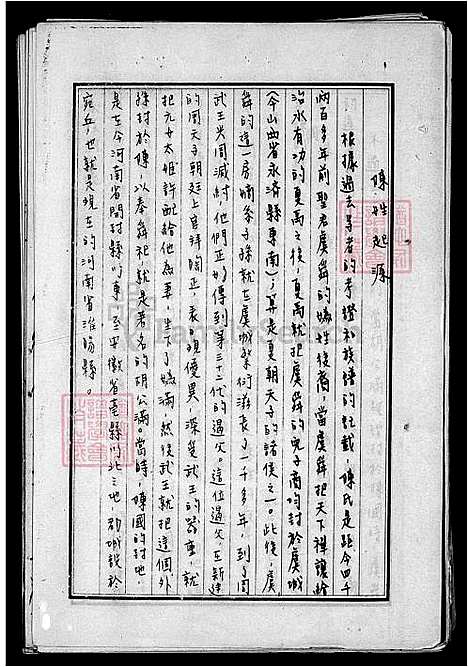 陳姓起源
根據過去學者的考證和族譜的記載，陳氏是距今四千
兩百多年前聖君虞舜的媯姓後裔，當虞舜把天下禪讓給
治水有功的夏禹之後，夏禹就把虞舜的兒子商均封於虞城
（今山西省永濟縣東南），算是夏朝天子的諸侯之一。此後，虞
舜的這一房嫡系子孫就在虞城繁衍滋長了一千多年，到了周
武王炎周滅紂，他們正好傳到第三十二代的遏父。這位遏父，在新建
的周天子朝廷上官拜陶正，表現優異，深獲武王的器重，就
把元女太姬許配給他為妻，生了媯滿，然後武王就把這個外
孫封於陳，以奉舜祀，就是著名的胡公滿。當時，陳國的封地，
是在今河南省開封縣以東，至安徽省亳縣以北之地，都城設於
宛丘，也就是現在的河南省淮陽縣。